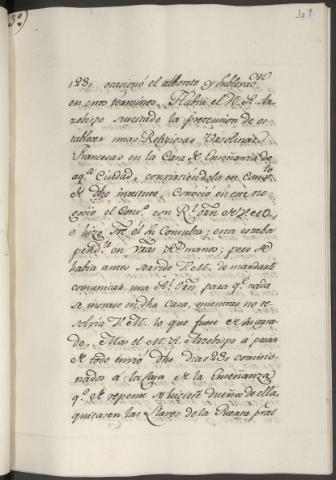 3º)
ocasionó el alboroto y sublevac.on
en estos terminos. Havia el M. R. Ar-
zobispo suscitado la pretension de es-
tablecer unas Religiosas Ursolinas
Francesas en la Casa de Enseñanza de
aq.a Ciudad, convirtiendola en Conv.to
de dho instituto. Conoció en este ne-
gocio el Cons.o con R.l orn de V. M.,
è hizo sre el la Consulta; esta estaba
pend.te en Vras R.s manos; pero se
habia antes servido V. M. de mandarle
comunicar una R.l Orn, para q.e nada
se inovase en dha Casa, mientras no re-
solvia V. M. lo que fuese de su agra-
do. Mas el M. R. Arzobispo a pesar
de todo envió dho dias comisio-
nados á la Casa de la Enseñanza
q.e de repente se hiciesen dueños de ella,
quitasen las Llaves de la Puerta pral